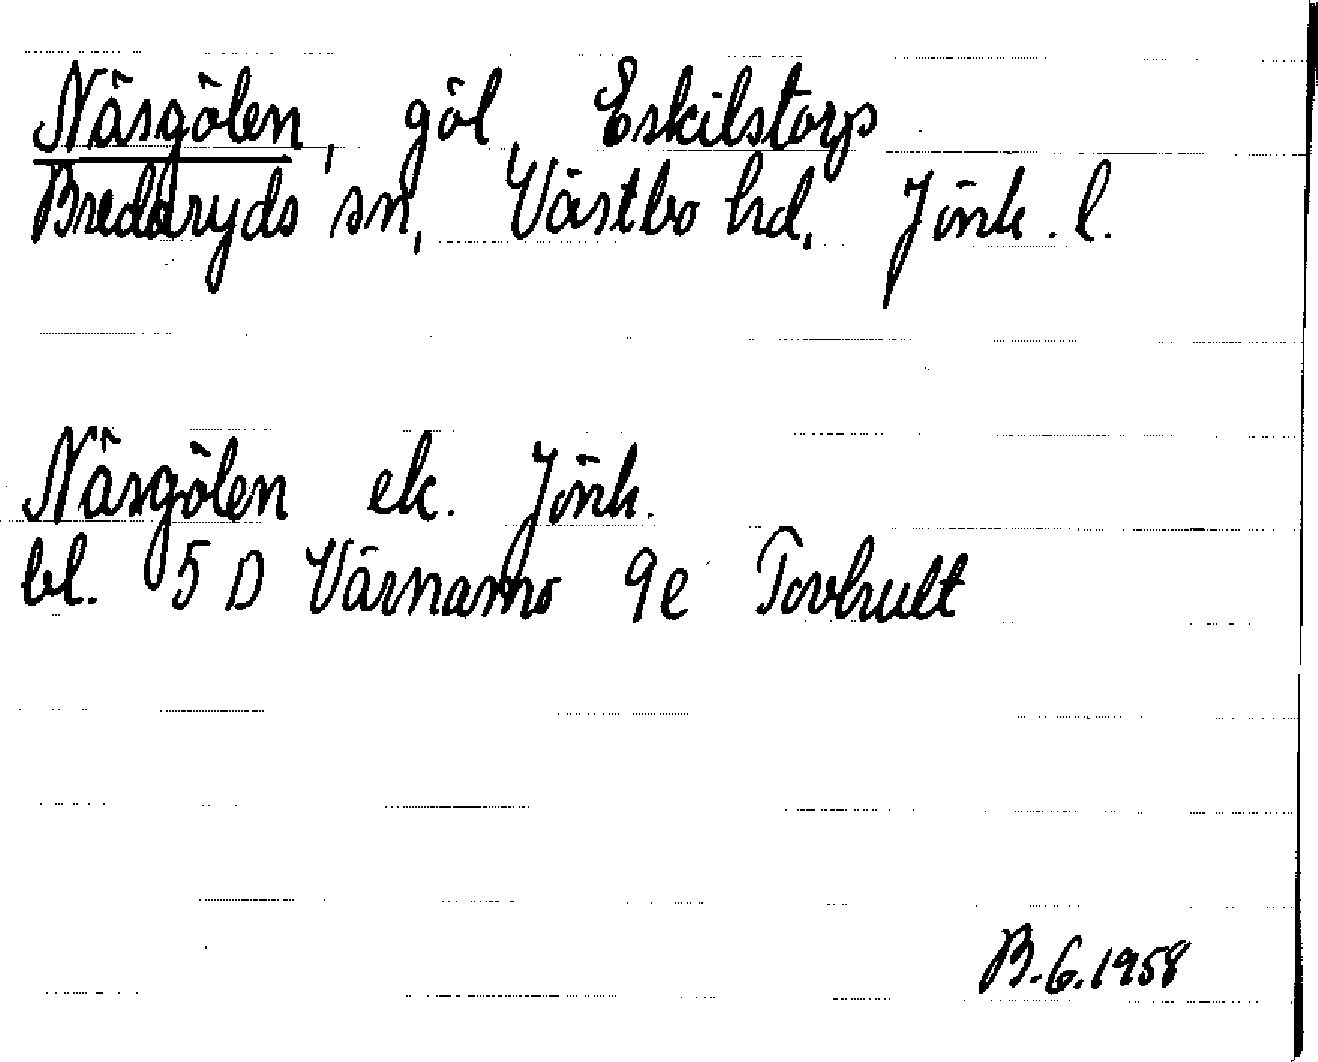 Näsgölen, göl, Eskilstorp
Bredaryds sn, Västbo hd, Jönk. l.
Näsgölen ek. Jönk.
bl. 5 D Värnamo 9e Torhult
B.G.1958